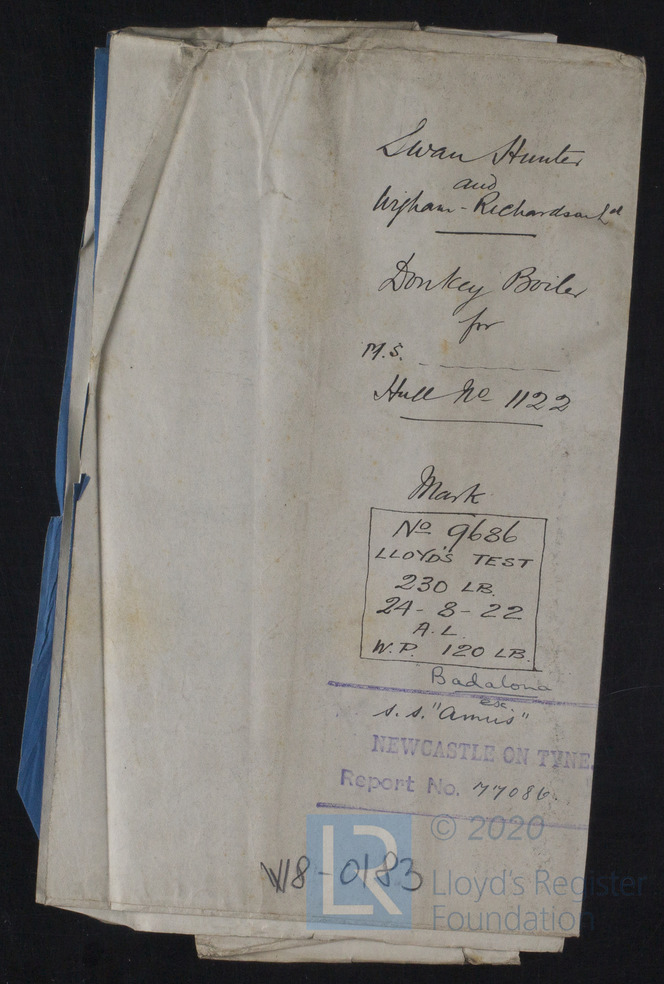 Swan Hunter
and
Wigham-Richardson Ld
Donkey Boiler
for
M.S.
Hull No 1122
Mark
No 9686
LLOYD'S TEST
230 LB.
24-8-22
A.L.
W.P. 120 LB.
Badalona
ex.
s.s. "Amus"
NEWCASTLE ON TYNE.
Report No. 77086.
W8-0183
LR
© 2020
Lloyd's Register
Foundation